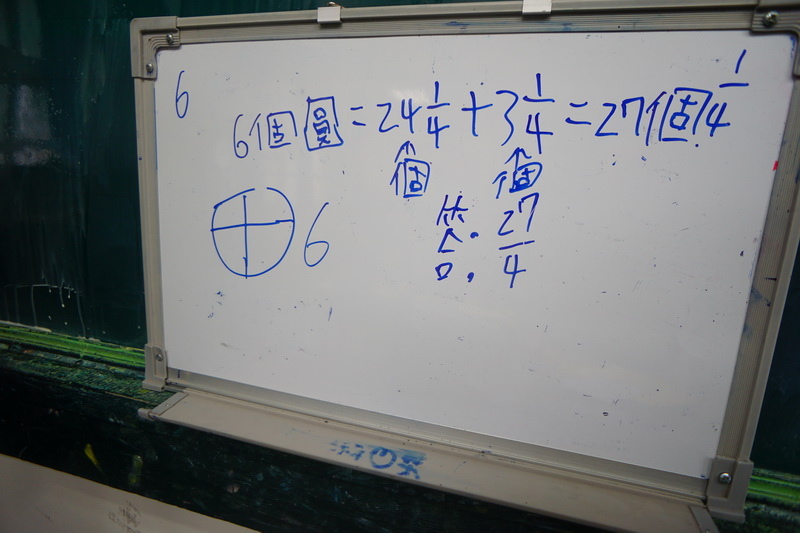 6
6個圓=24 1/4+3 1/4=27個 1/4
個 個
6
答. 27/4